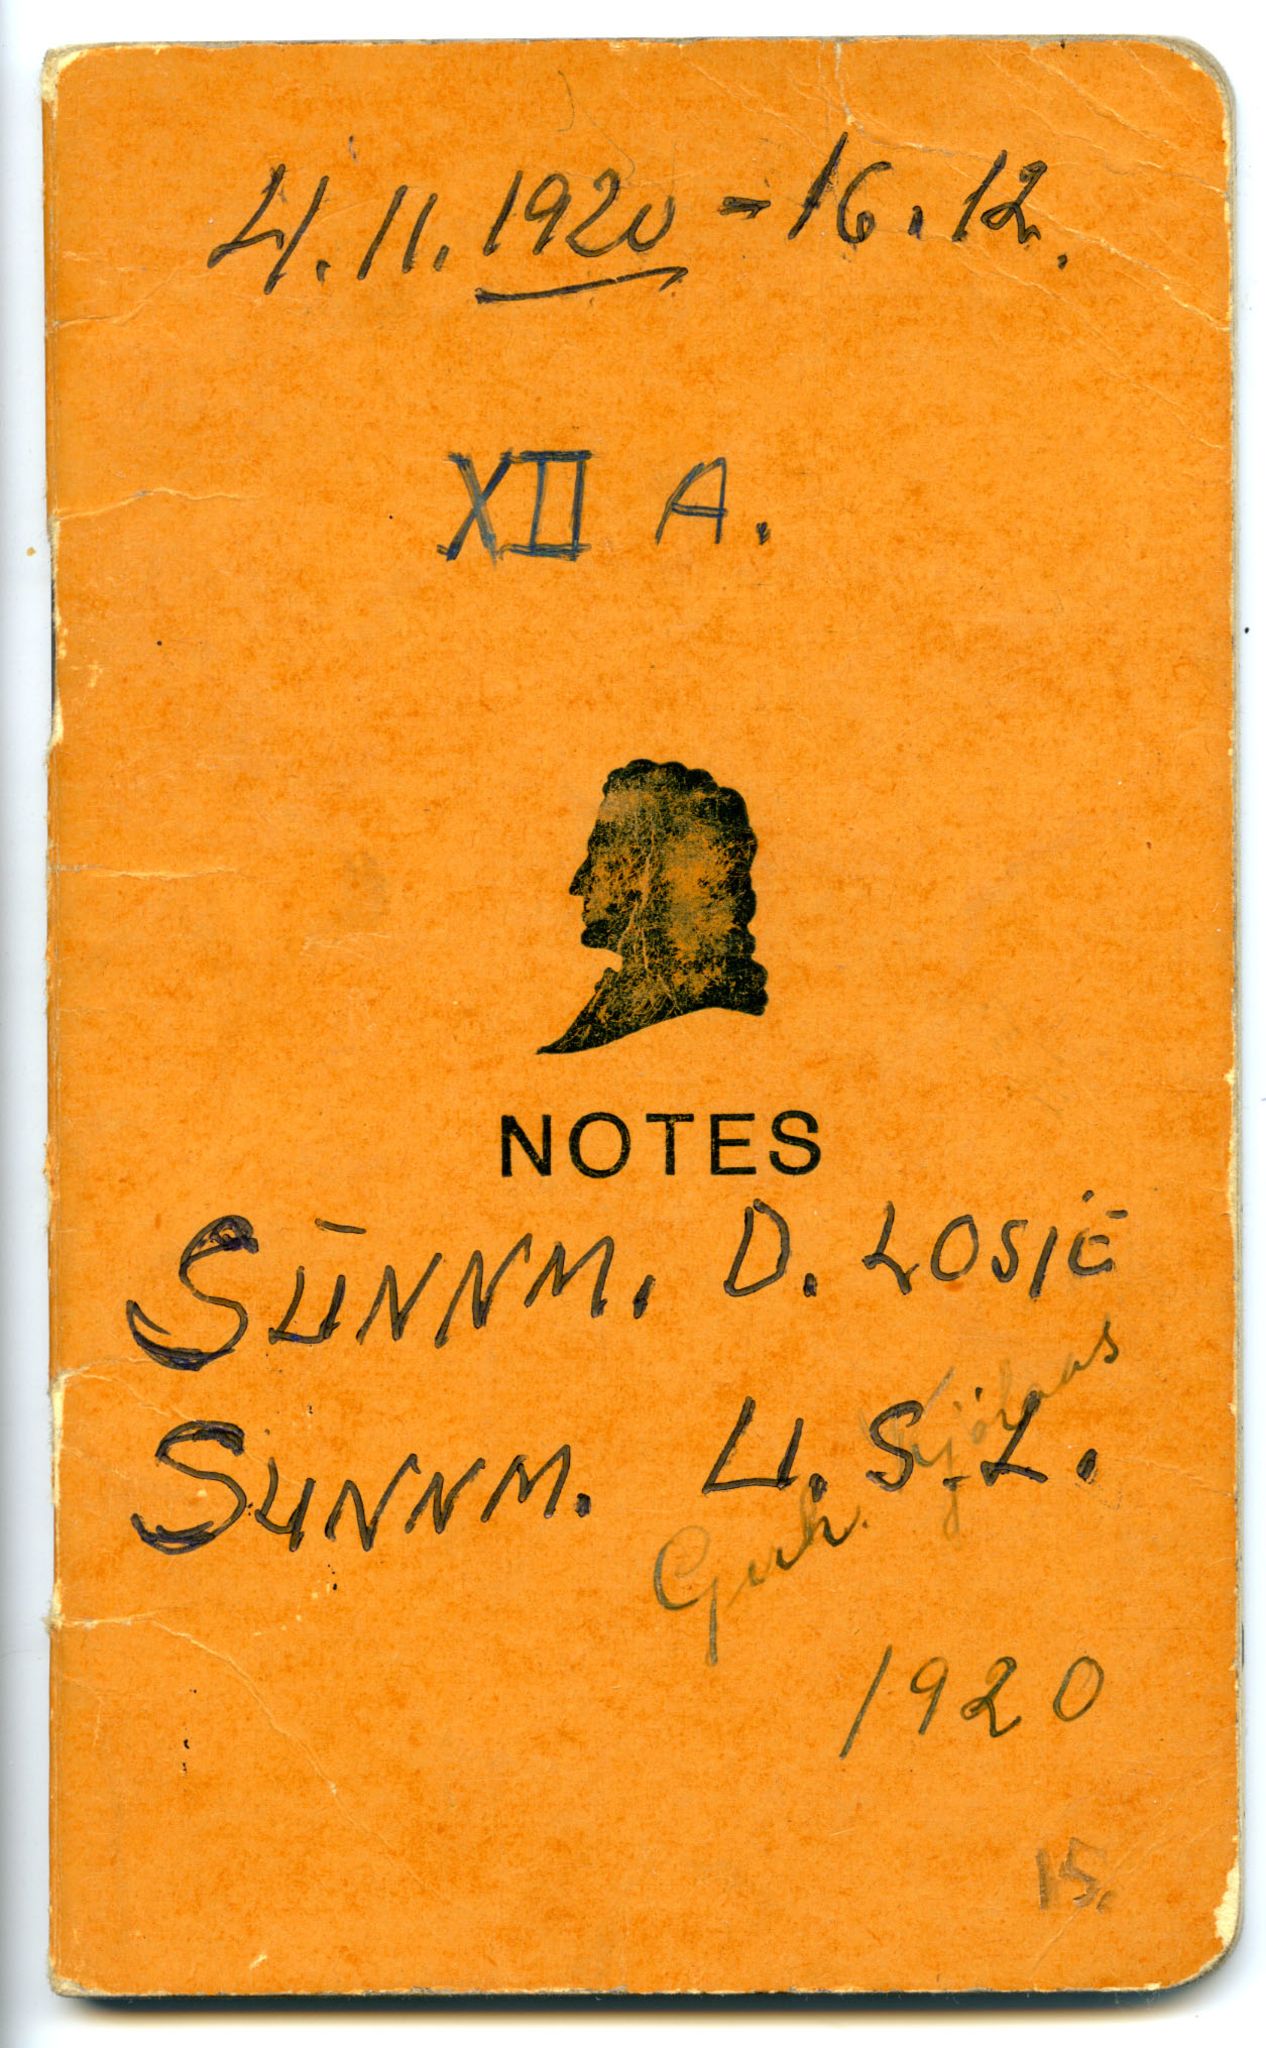 4.11.1920 - 16.12.
XII A.
NOTES
SUNNM. D. LOSJE
SUNNM. U.S.L.
Gerh. Kjölaas
1920
15.